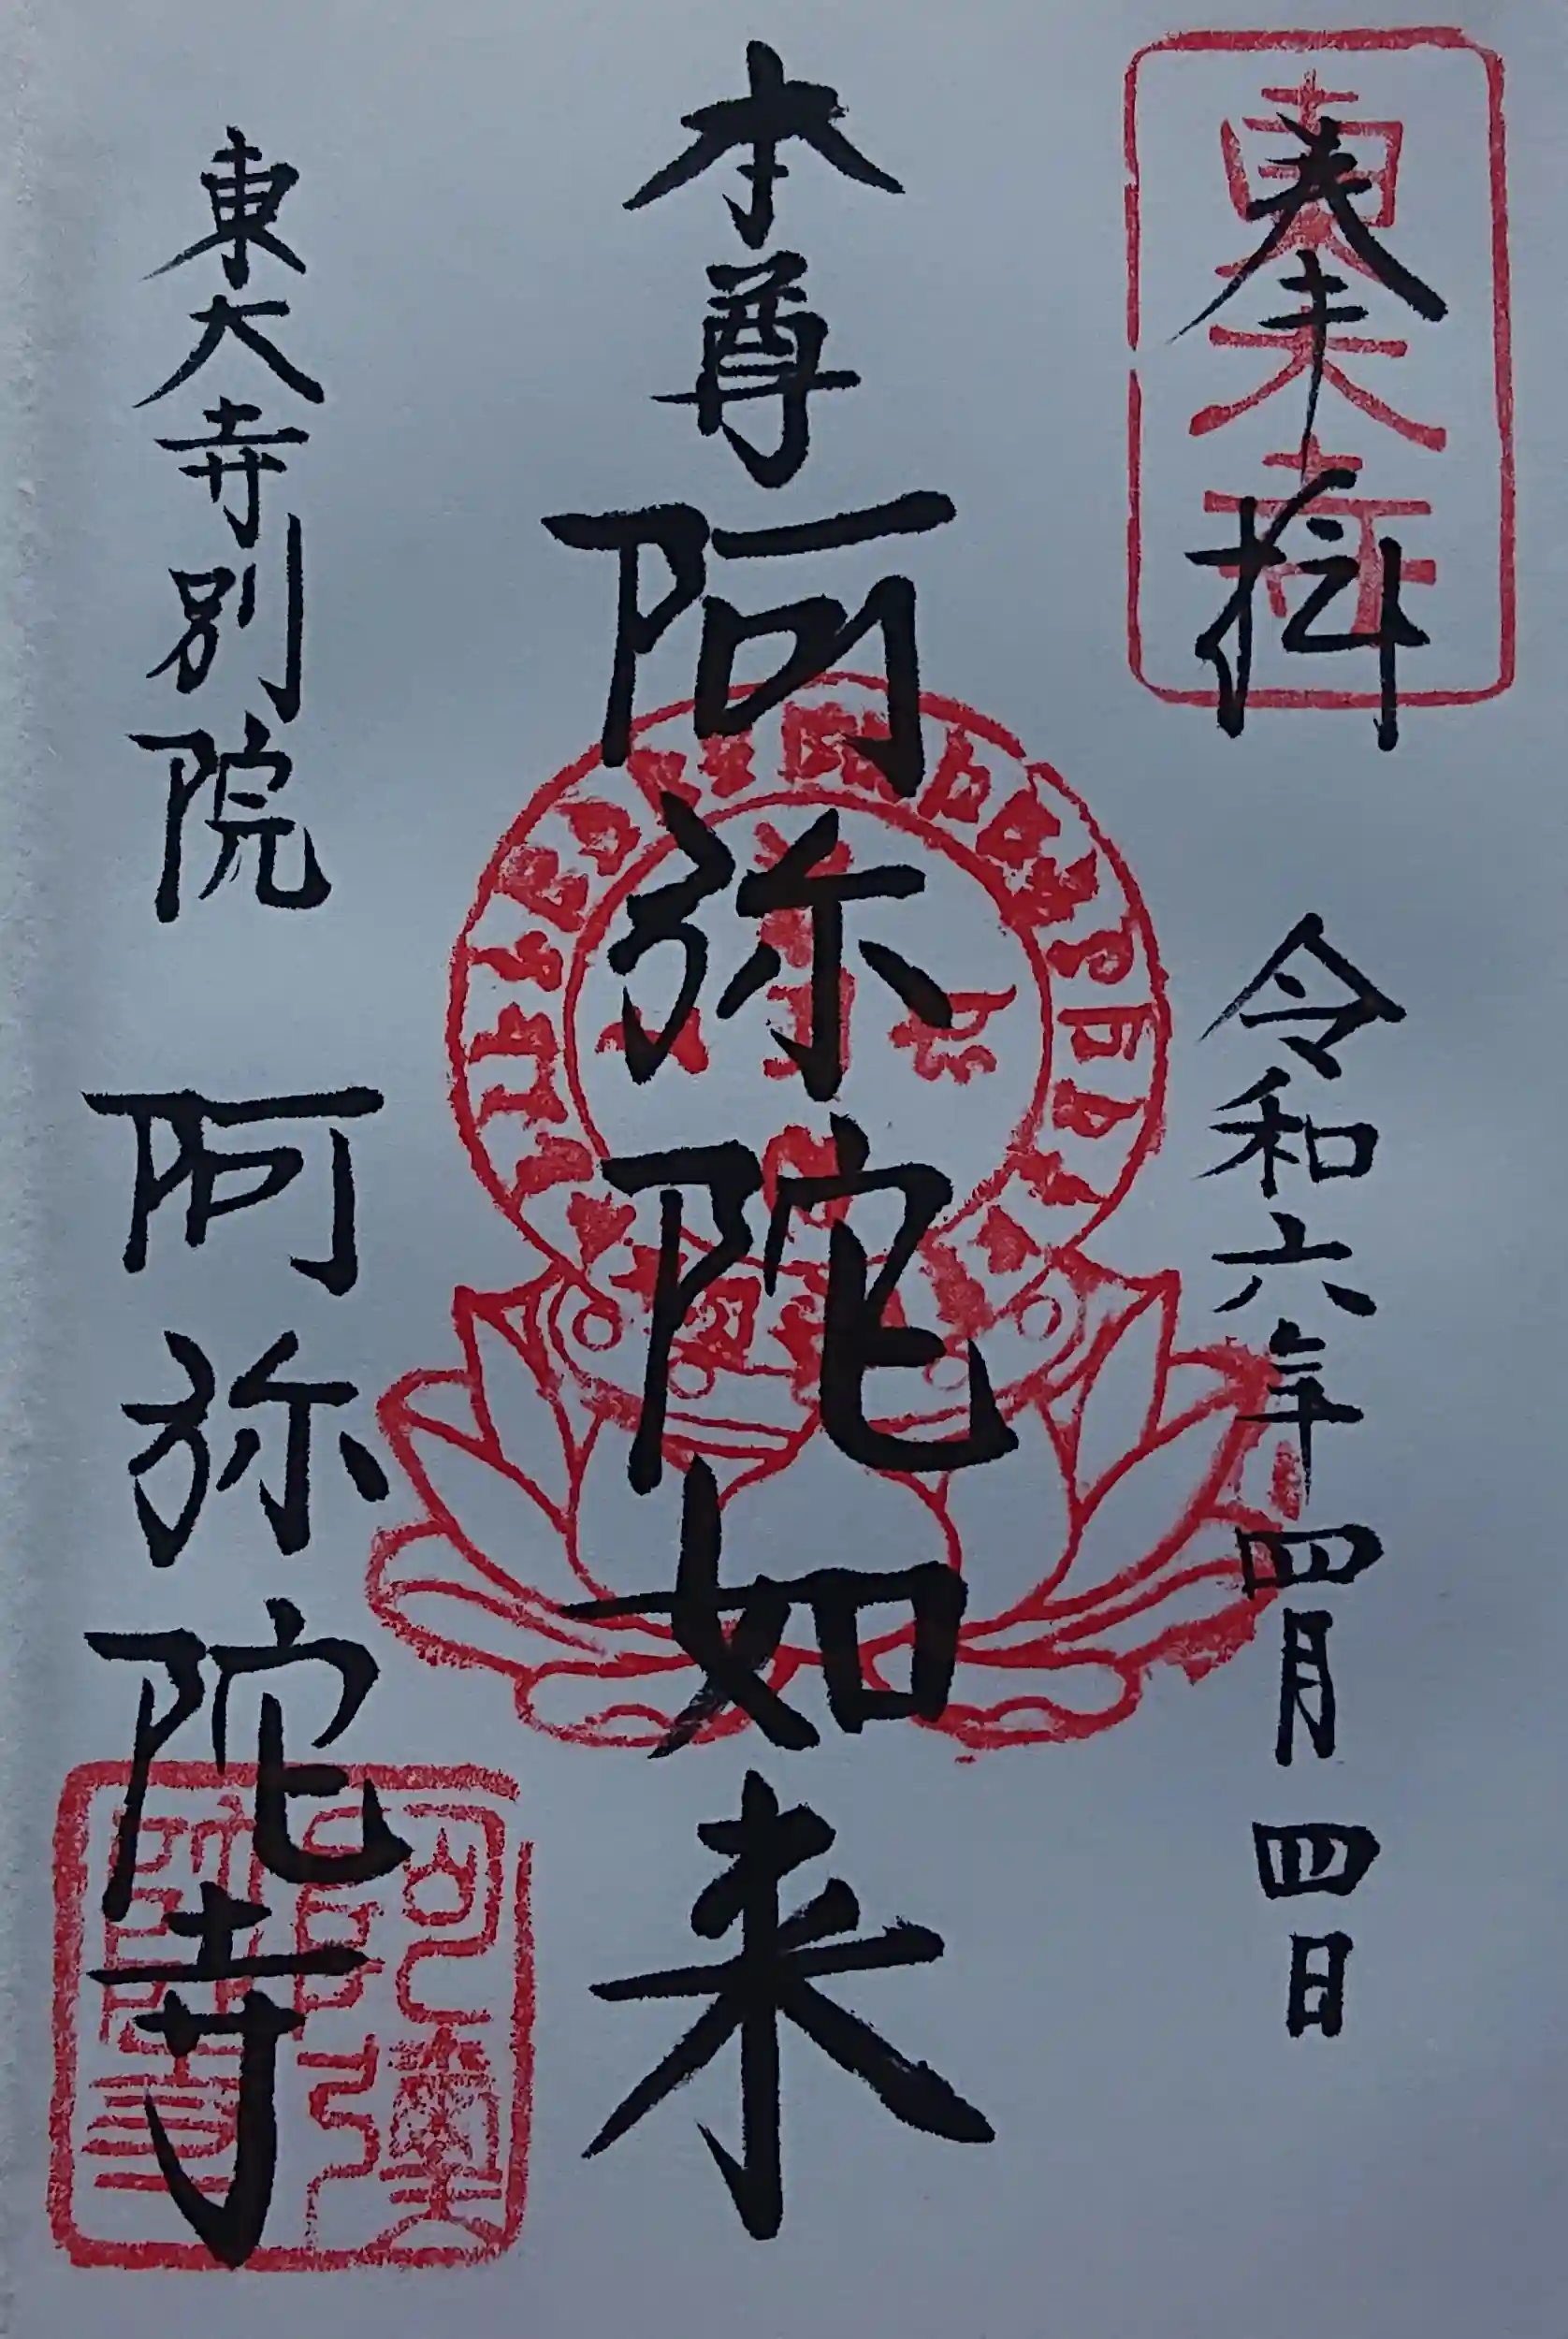 奉拝
東大寺
令和六年四月四日
本尊
阿弥陀如来
東大寺別院
阿弥陀寺